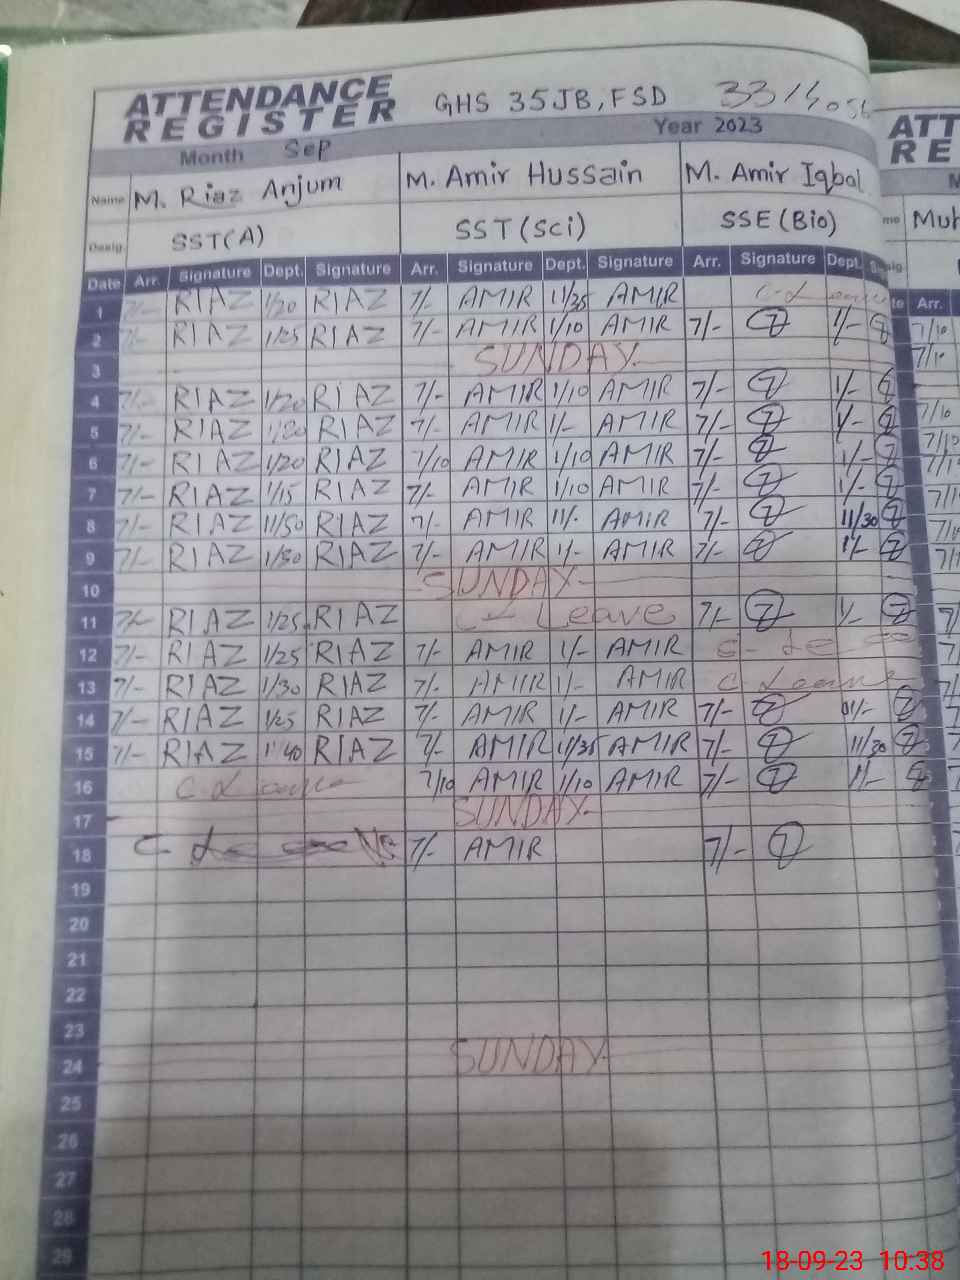 ATTENDANCE REGISTER GHS 35JB, FSD
Month Sep Year 2023
Name M. Riaz Anjum M. Amir Hussain M. Amir Iqbal
Desig. SST(A) SST(Sci) SSE(Bio)
Date Arr. Signature Dept. Signature Arr. Signature Dept. Signature Arr. Signature Dept.
1 7/- RIAZ 1/20 RIAZ 7/- AMIR 11/35 AMIR C-Leave
2 7/- RIAZ 1/25 RIAZ 7/- AMIR 1/10 AMIR 7/- 1/-
3 SUNDAY
4 7/- RIAZ 1/20 RIAZ 7/- AMIR 1/10 AMIR 7/- 1/-
5 7/- RIAZ RIAZ 7/- AMIR 1/- AMIR 7/- 1/-
6 7/- RIAZ 1/20 RIAZ 7/10 AMIR 1/10 AMIR 7/- 1/-
7 7/- RIAZ 1/15 RIAZ 7/- AMIR 1/10 AMIR 7/- 1/-
8 7/- RIAZ 11/50 RIAZ 7/- AMIR 11/- AMIR 7/- 11/30
9 7/- RIAZ 1/30 RIAZ 7/- AMIR 1/- AMIR 7/- 1/-
10 SUNDAY
11 7/- RIAZ 1/25 RIAZ C-Leave 7/- 1/-
12 7/- RIAZ 1/25 RIAZ 7/- AMIR 1/- AMIR
13 7/- RIAZ 1/30 RIAZ 7/- AMIR 1/- AMIR C Leave
14 7/- RIAZ 1/25 RIAZ 7/- AMIR 1/- AMIR 7/-
15 7/- RIAZ 11/40 RIAZ 7/- AMIR 11/35 AMIR 7/- 11/30
16 C-Leave 7/10 AMIR 1/10 AMIR 7/- 1/-
17 SUNDAY
18 7/- AMIR 7/-
19
20
21
22
23
24 SUNDAY
25
26
27
28
29
ATT
RE
Muh
Arr.
7/10
7/10
7/10
7/10
18-09-23 10:38